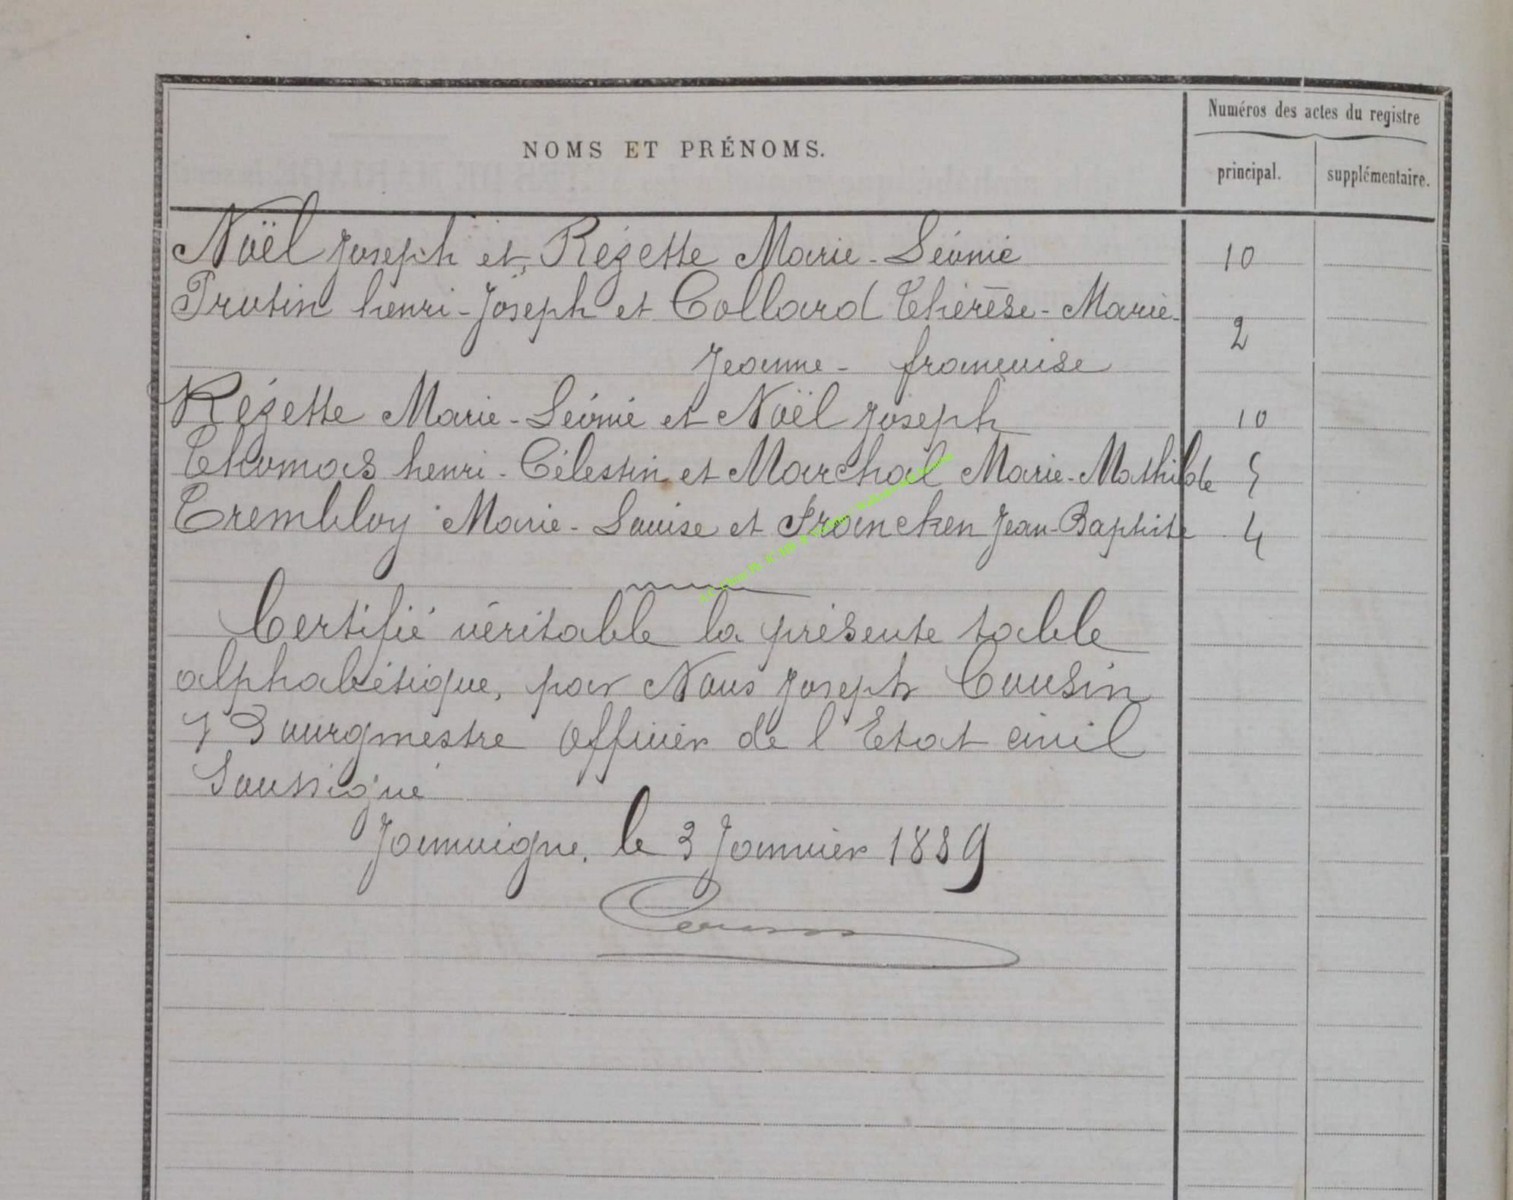 NOMS ET PRÉNOMS.
Numéros des actes du registre
principal.
supplémentaire.
Noël Joseph et Rézette Marie-Léonie 10
Protin henri-Joseph et Collard Thérèse-Marie-
Jeanne-françoise 2
Rézette Marie-Léonie et Noël Joseph 10
Thomas henri-Célestin et Marchal Marie-Mathilde 5
Trembloy Marie-Louise et Francken Jean-Baptiste 4
Certifié véritable la présente table
alphabétique, par Nous Joseph Cousin
Bourgmestre officier de l'Etat civil
Soussigné
Jamoigne, le 3 Janvier 1889
Cousin